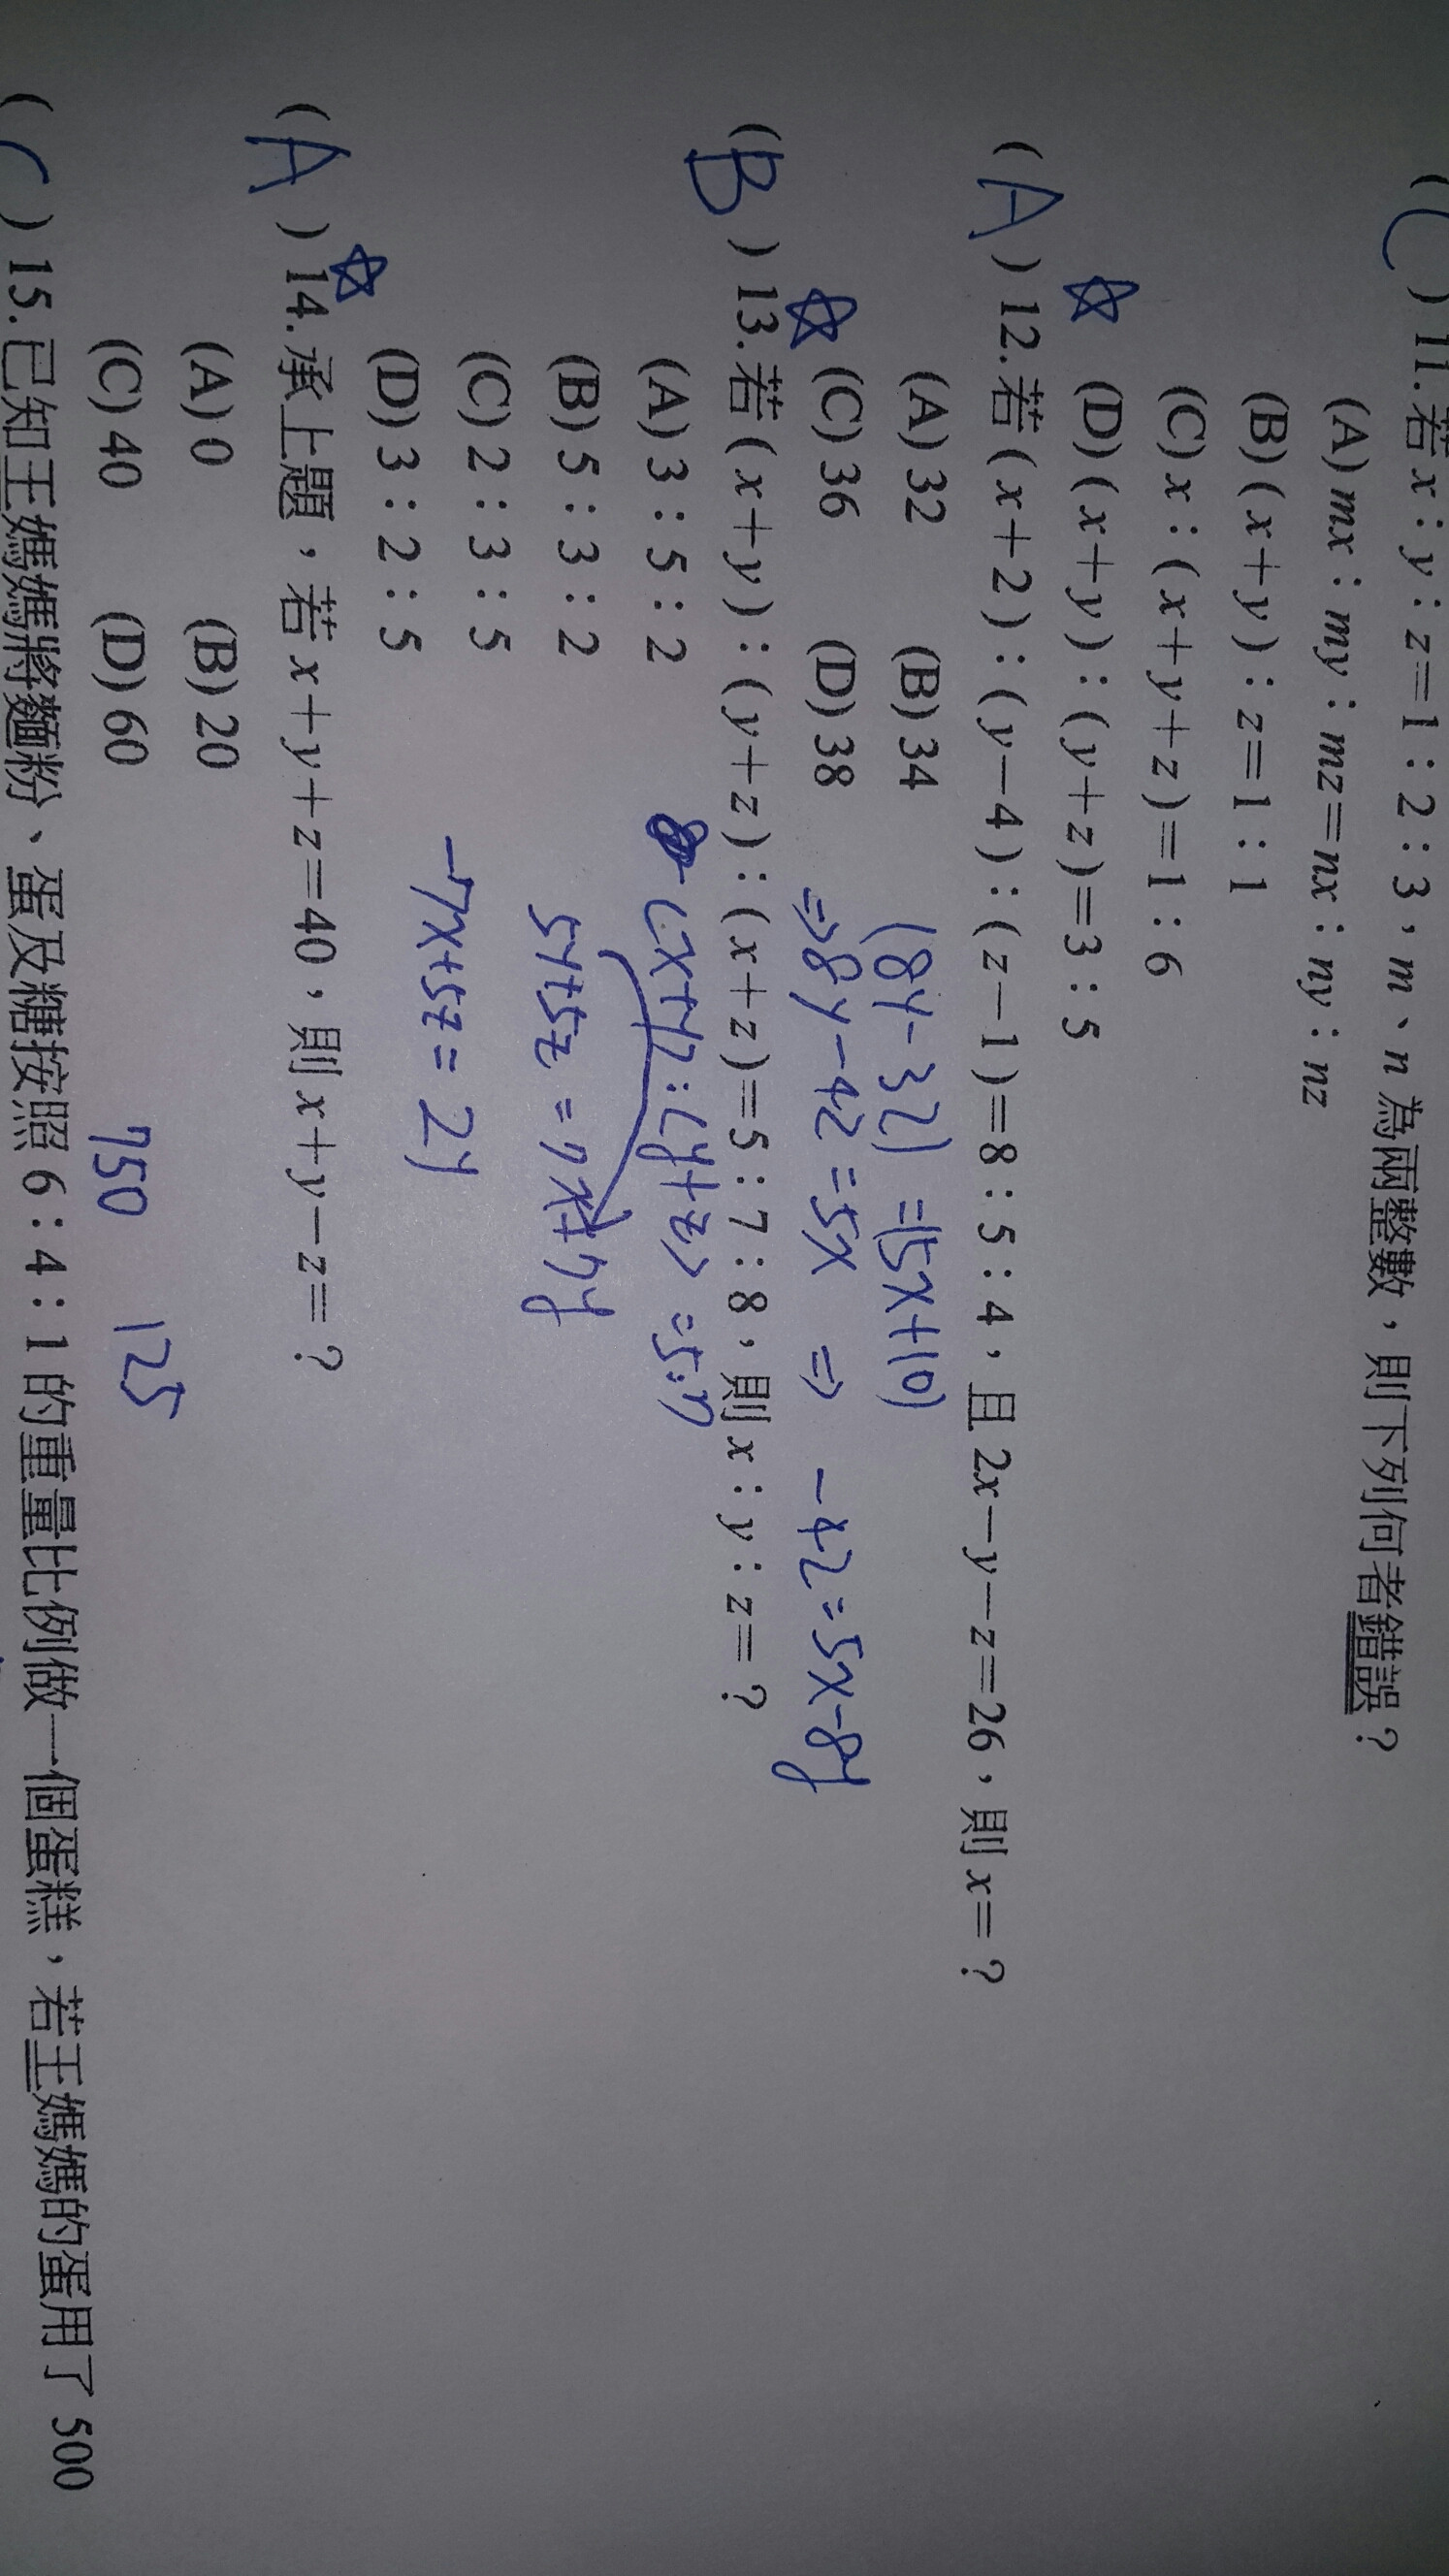 (C) 11.若 x：y：z=1：2：3，m、n 為兩整數，則下列何者錯誤？
(A) mx：my：mz=nx：ny：nz
(B) (x+y)：z=1：1
(C) x：(x+y+z)=1：6
(D) (x+y)：(y+z)=3：5
(A) 12.若(x+2)：(y-4)：(z-1)=8：5：4，且 2x-y-z=26，則 x=？
(A) 32 (B) 34
(8y-32)=(5x+10)
(C) 36 (D) 38
⇒8y-42=5x ⇒ -42=5x-8y
(B) 13.若(x+y)：(y+z)：(x+z)=5：7：8，則 x：y：z=？
(A) 3：5：2
(x+y):(y+z)=5:7
(B) 5：3：2
5y+5z=7x+7y
(C) 2：3：5
-7x+5z=2y
(D) 3：2：5
(A) 14.承上題，若 x+y+z=40，則 x+y-z=？
(A) 0 (B) 20
(C) 40 (D) 60
750 125
(C) 15.已知王媽媽將麵粉、蛋及糖按照 6：4：1 的重量比例做一個蛋糕，若王媽媽的蛋用了 500